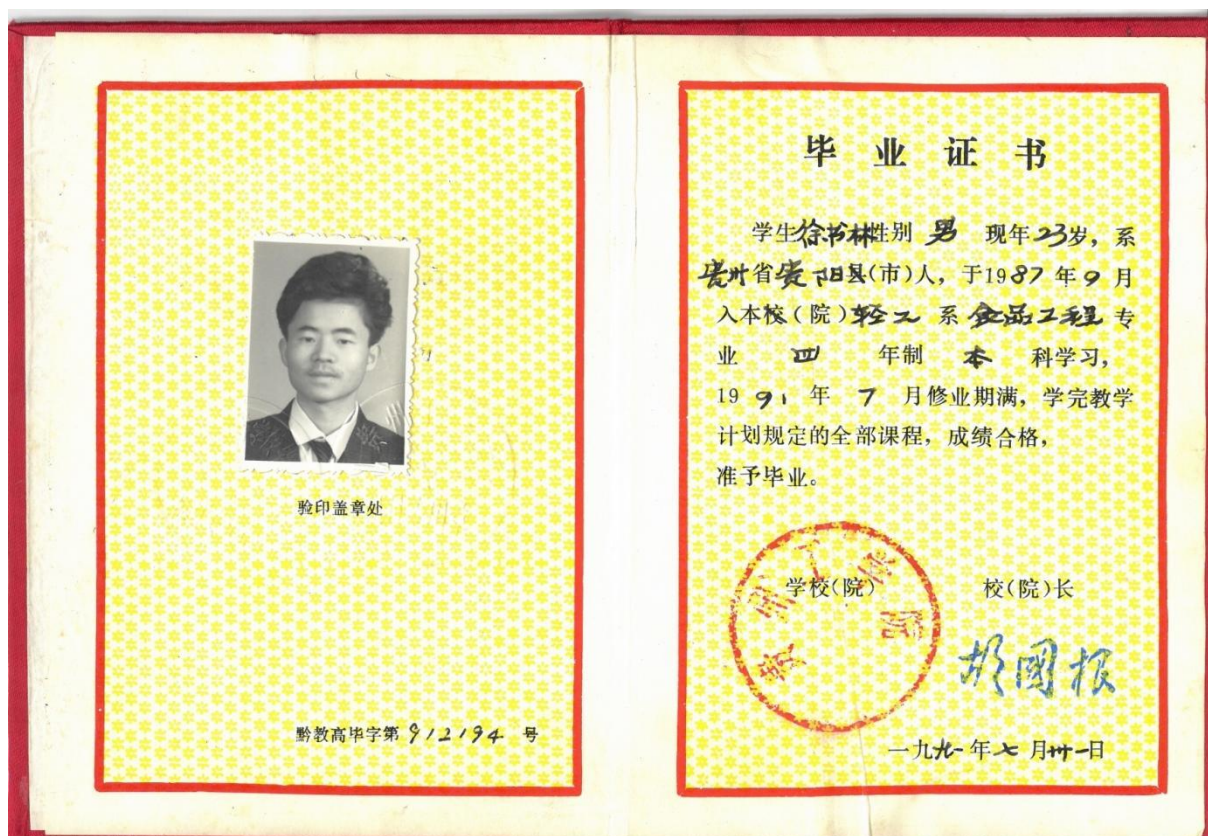 验印盖章处
黔教高毕字第 912194 号
毕业证书
学生徐书林性别 男 现年23岁，系
贵州省贵阳县(市)人，于1987年9月
入本校(院)轻工系食品工程专
业 四 年制 本 科学习，
1991年7月修业期满，学完教学
计划规定的全部课程，成绩合格，
准予毕业。
贵州工学院
学校(院) 校(院)长
胡國根
一九九一年七月卅一日